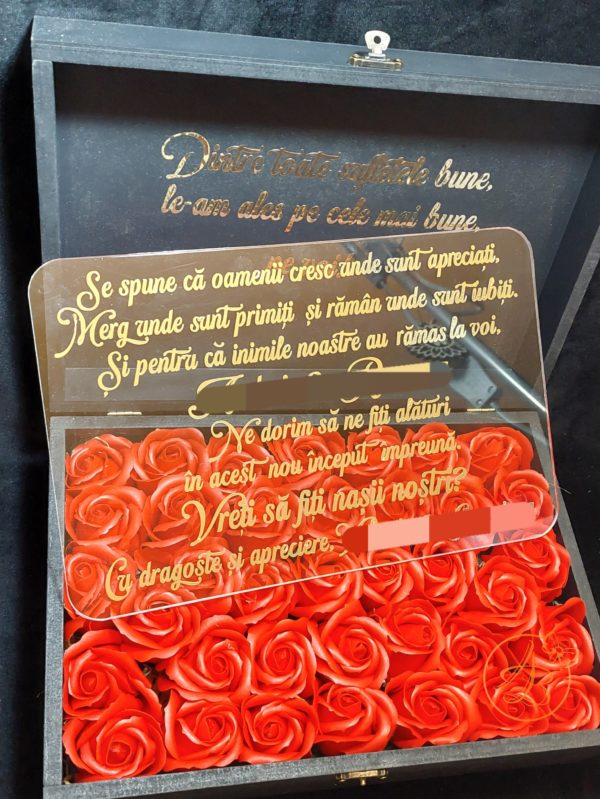 Dintre toate sufletele bune,
le-am ales pe cele mai bune,
Se spune că oamenii cresc unde sunt apreciați,
Merg unde sunt primiți și rămân unde sunt iubiți.
Și pentru că inimile noastre au rămas la voi,
Ne dorim să ne fiți alături
în acest nou început împreună.
Vreți să fiți nașii noștri?
Cu dragoste și apreciere,